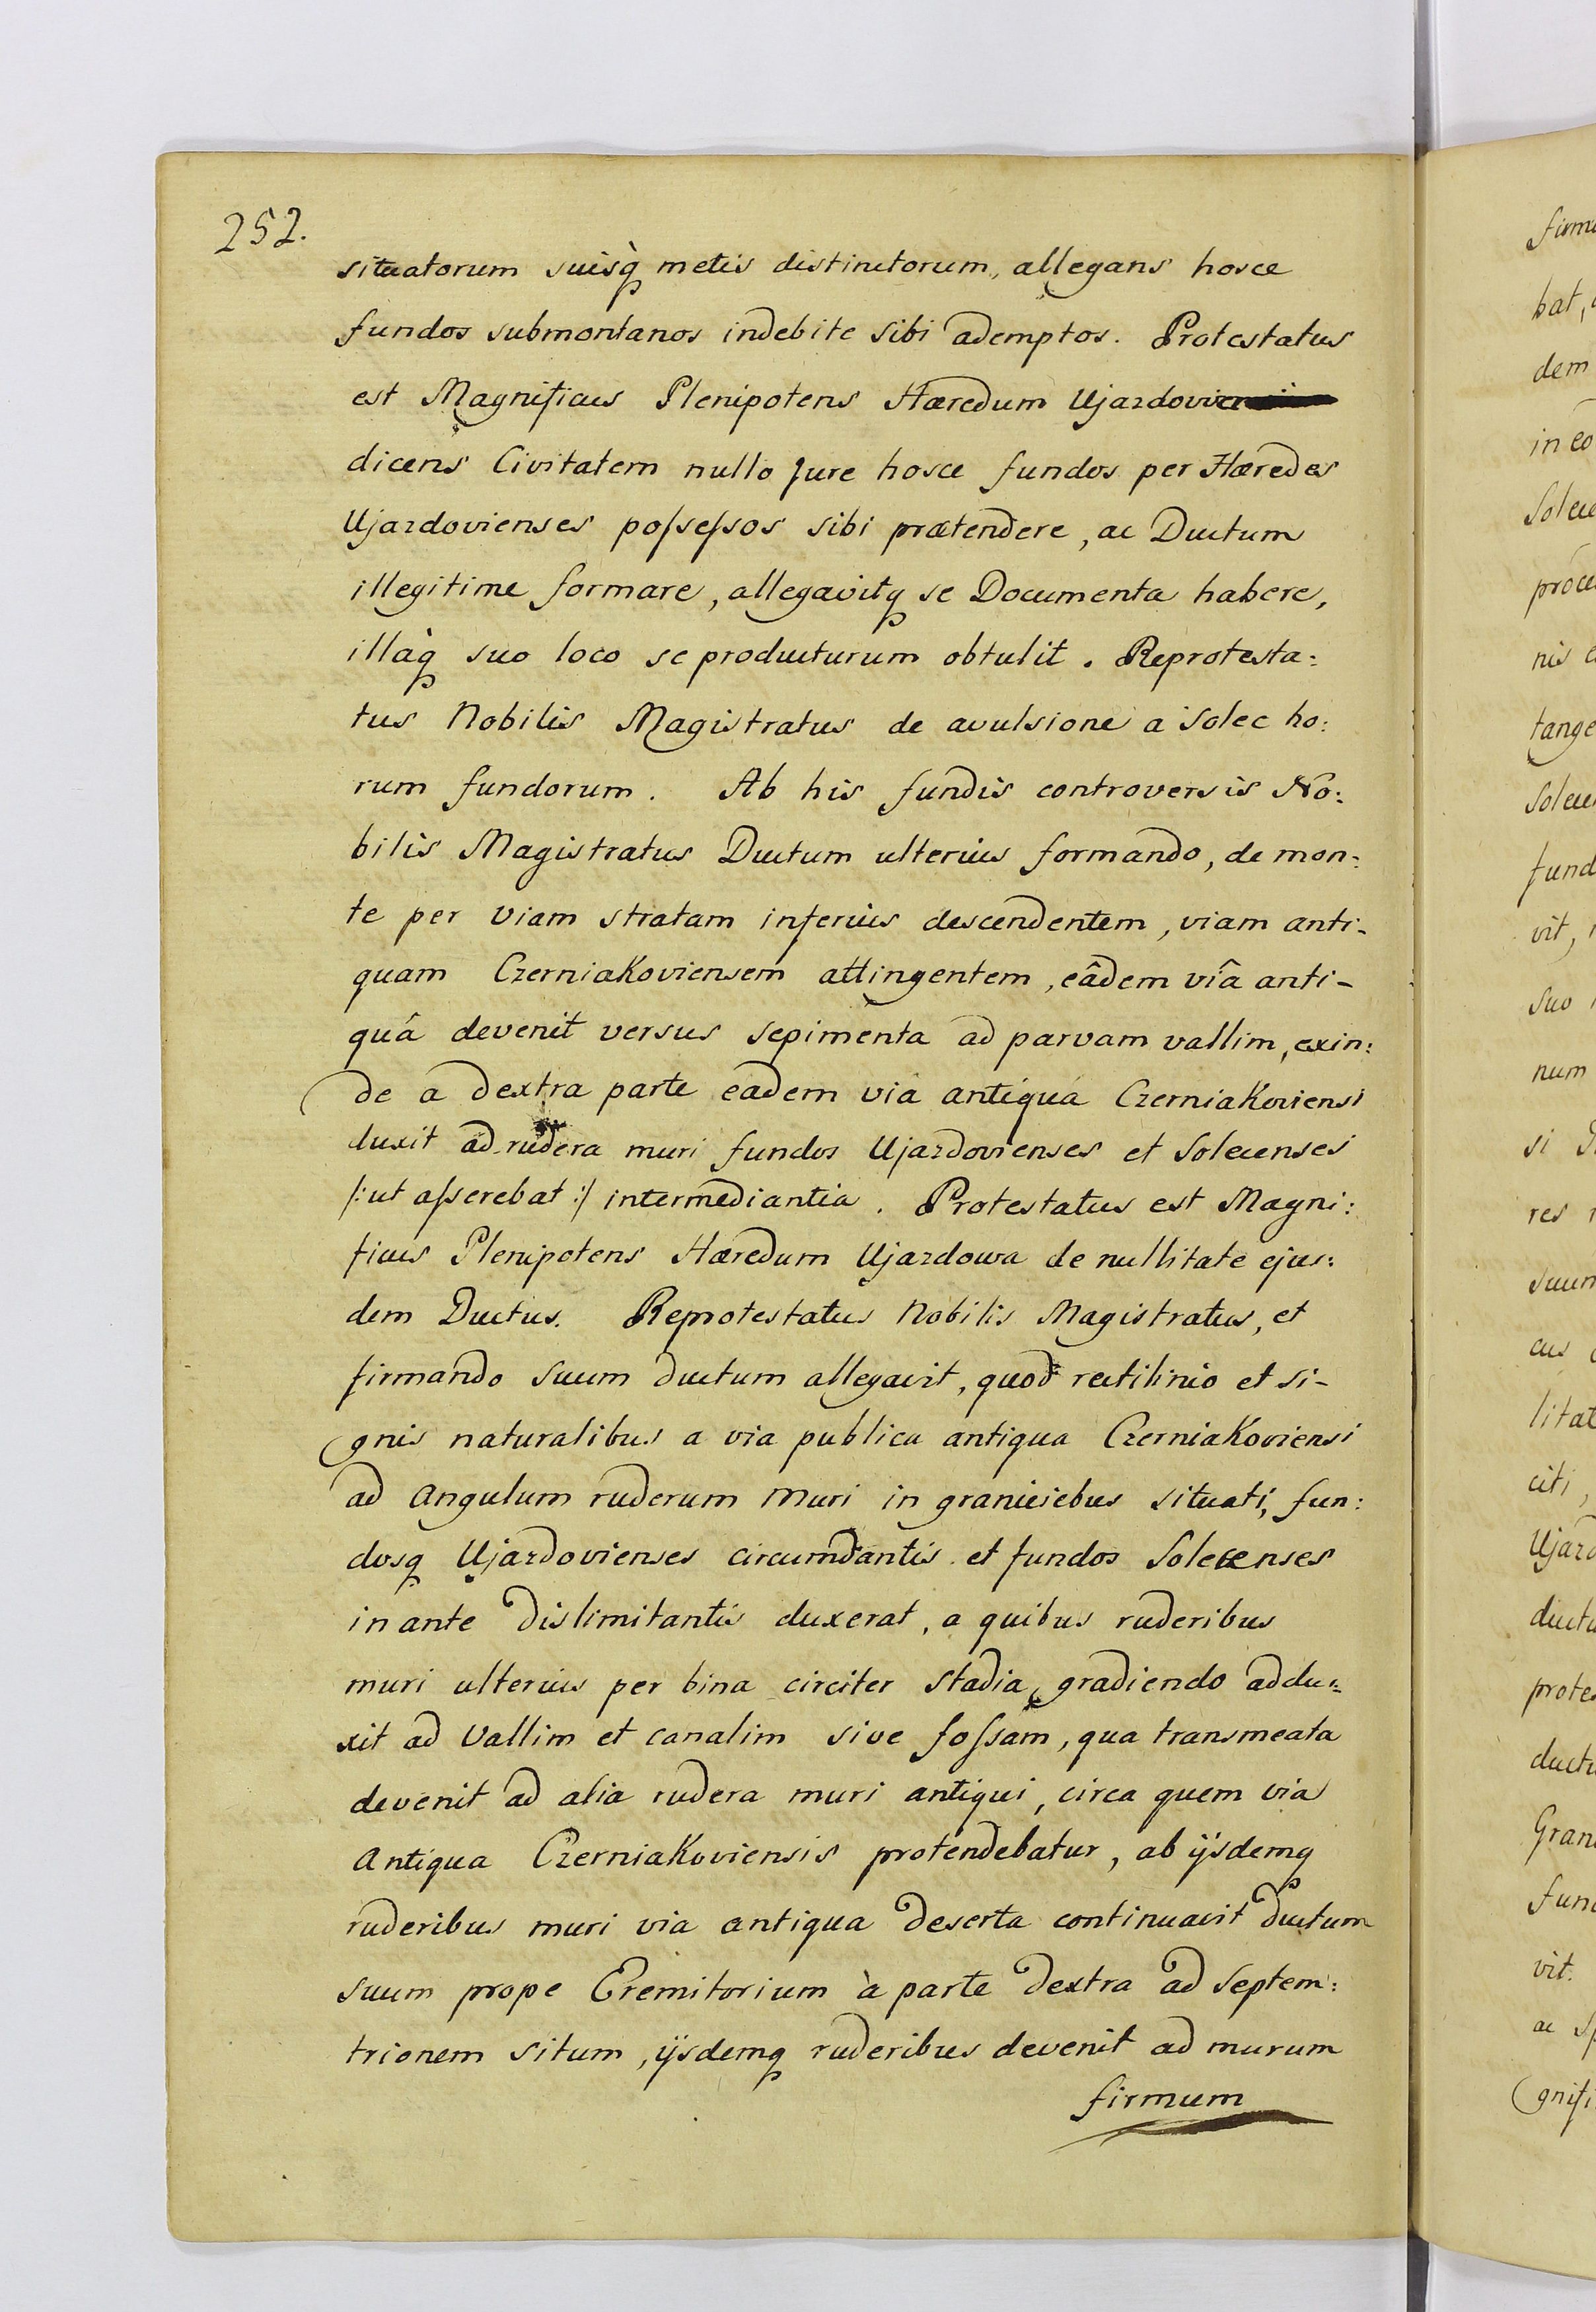 252.
situatorum suisq̀ metis distinctorum, allegans hosce
fundos submontanos indebite sibi ademptos. Protestatus
est Magnificus Plenipotens Hæredum Ujazdovi
dicens Civitatem nullo Jure hosce fundos per Hæredes
Ujazdovienses poſseſsos sibi prætendere, ac Ductum
illegitime formare, allegavitq se Documenta habere,
illàq suo loco se producturum obtulit. Reprotesta:
tus Nobilis Magistratus de avulsione a Solec ho:
rum fundorum. Ab his fundis controversis No:
bilis Magistratus Ductum ulterius formando, de mon:
te per viam stratam inferius descendentem, viam anti-
quam Czerniakoviensem attingentem, eâdem viâ anti-
quâ devenit versus sepimenta ad parvam vallim, exin:
de a dextra parte eadem via antiqua Czerniakoviensi
duxit ad rudera muri fundos Ujazdovienses et Solecenses
/:ut aſserebat:/ intermediantia. Protestatus est Magni:
ficus Plenipotens Hæredum Ujazdowa de nullitate ejus:
dem Ductus. Reprotestatus Nobilis Magistratus, et
firmando suum ductum allegavit, quod rectilinio et si-
gnis naturalibus a via publica antiqua Czerniakoviensi
ad Angulum ruderum Muri in graniciebus situati, fun:
dosq Ujazdovienses circumdantis et fundos Solecenses
in ante dislimitantis duxerat, a quibus ruderibus
muri ulterius per bina circiter stadia gradiendo addu=
xit ad Vallim et canalim sive foſsam, qua transmeata
devenit ad alia rudera muri antiqui, circa quem via
Antiqua Czerniakoviensis protendebatur, ab ijsdemq
ruderibus muri via antiqua deserta continuavit ductum
suum prope Eremitorium à parte dextra ad Septem:
trionem situm, ijsdemq ruderibus devenit ad murum
firmum